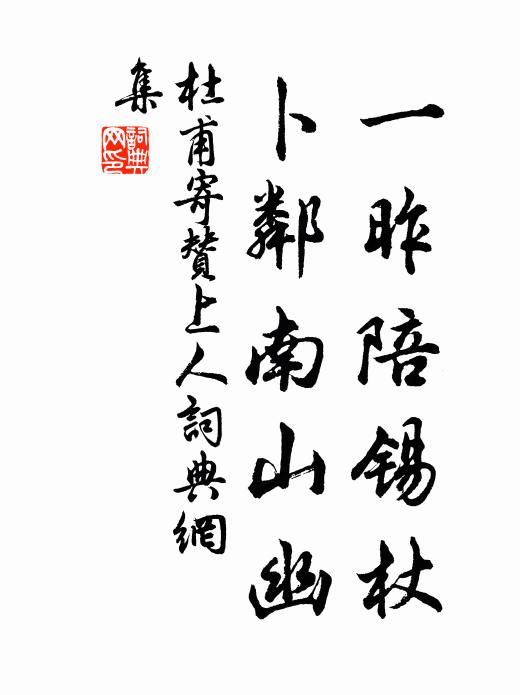 一昨陪锡杖
卜鄰南山幽
杜甫寄贊上人詞典網
集
詞典网印